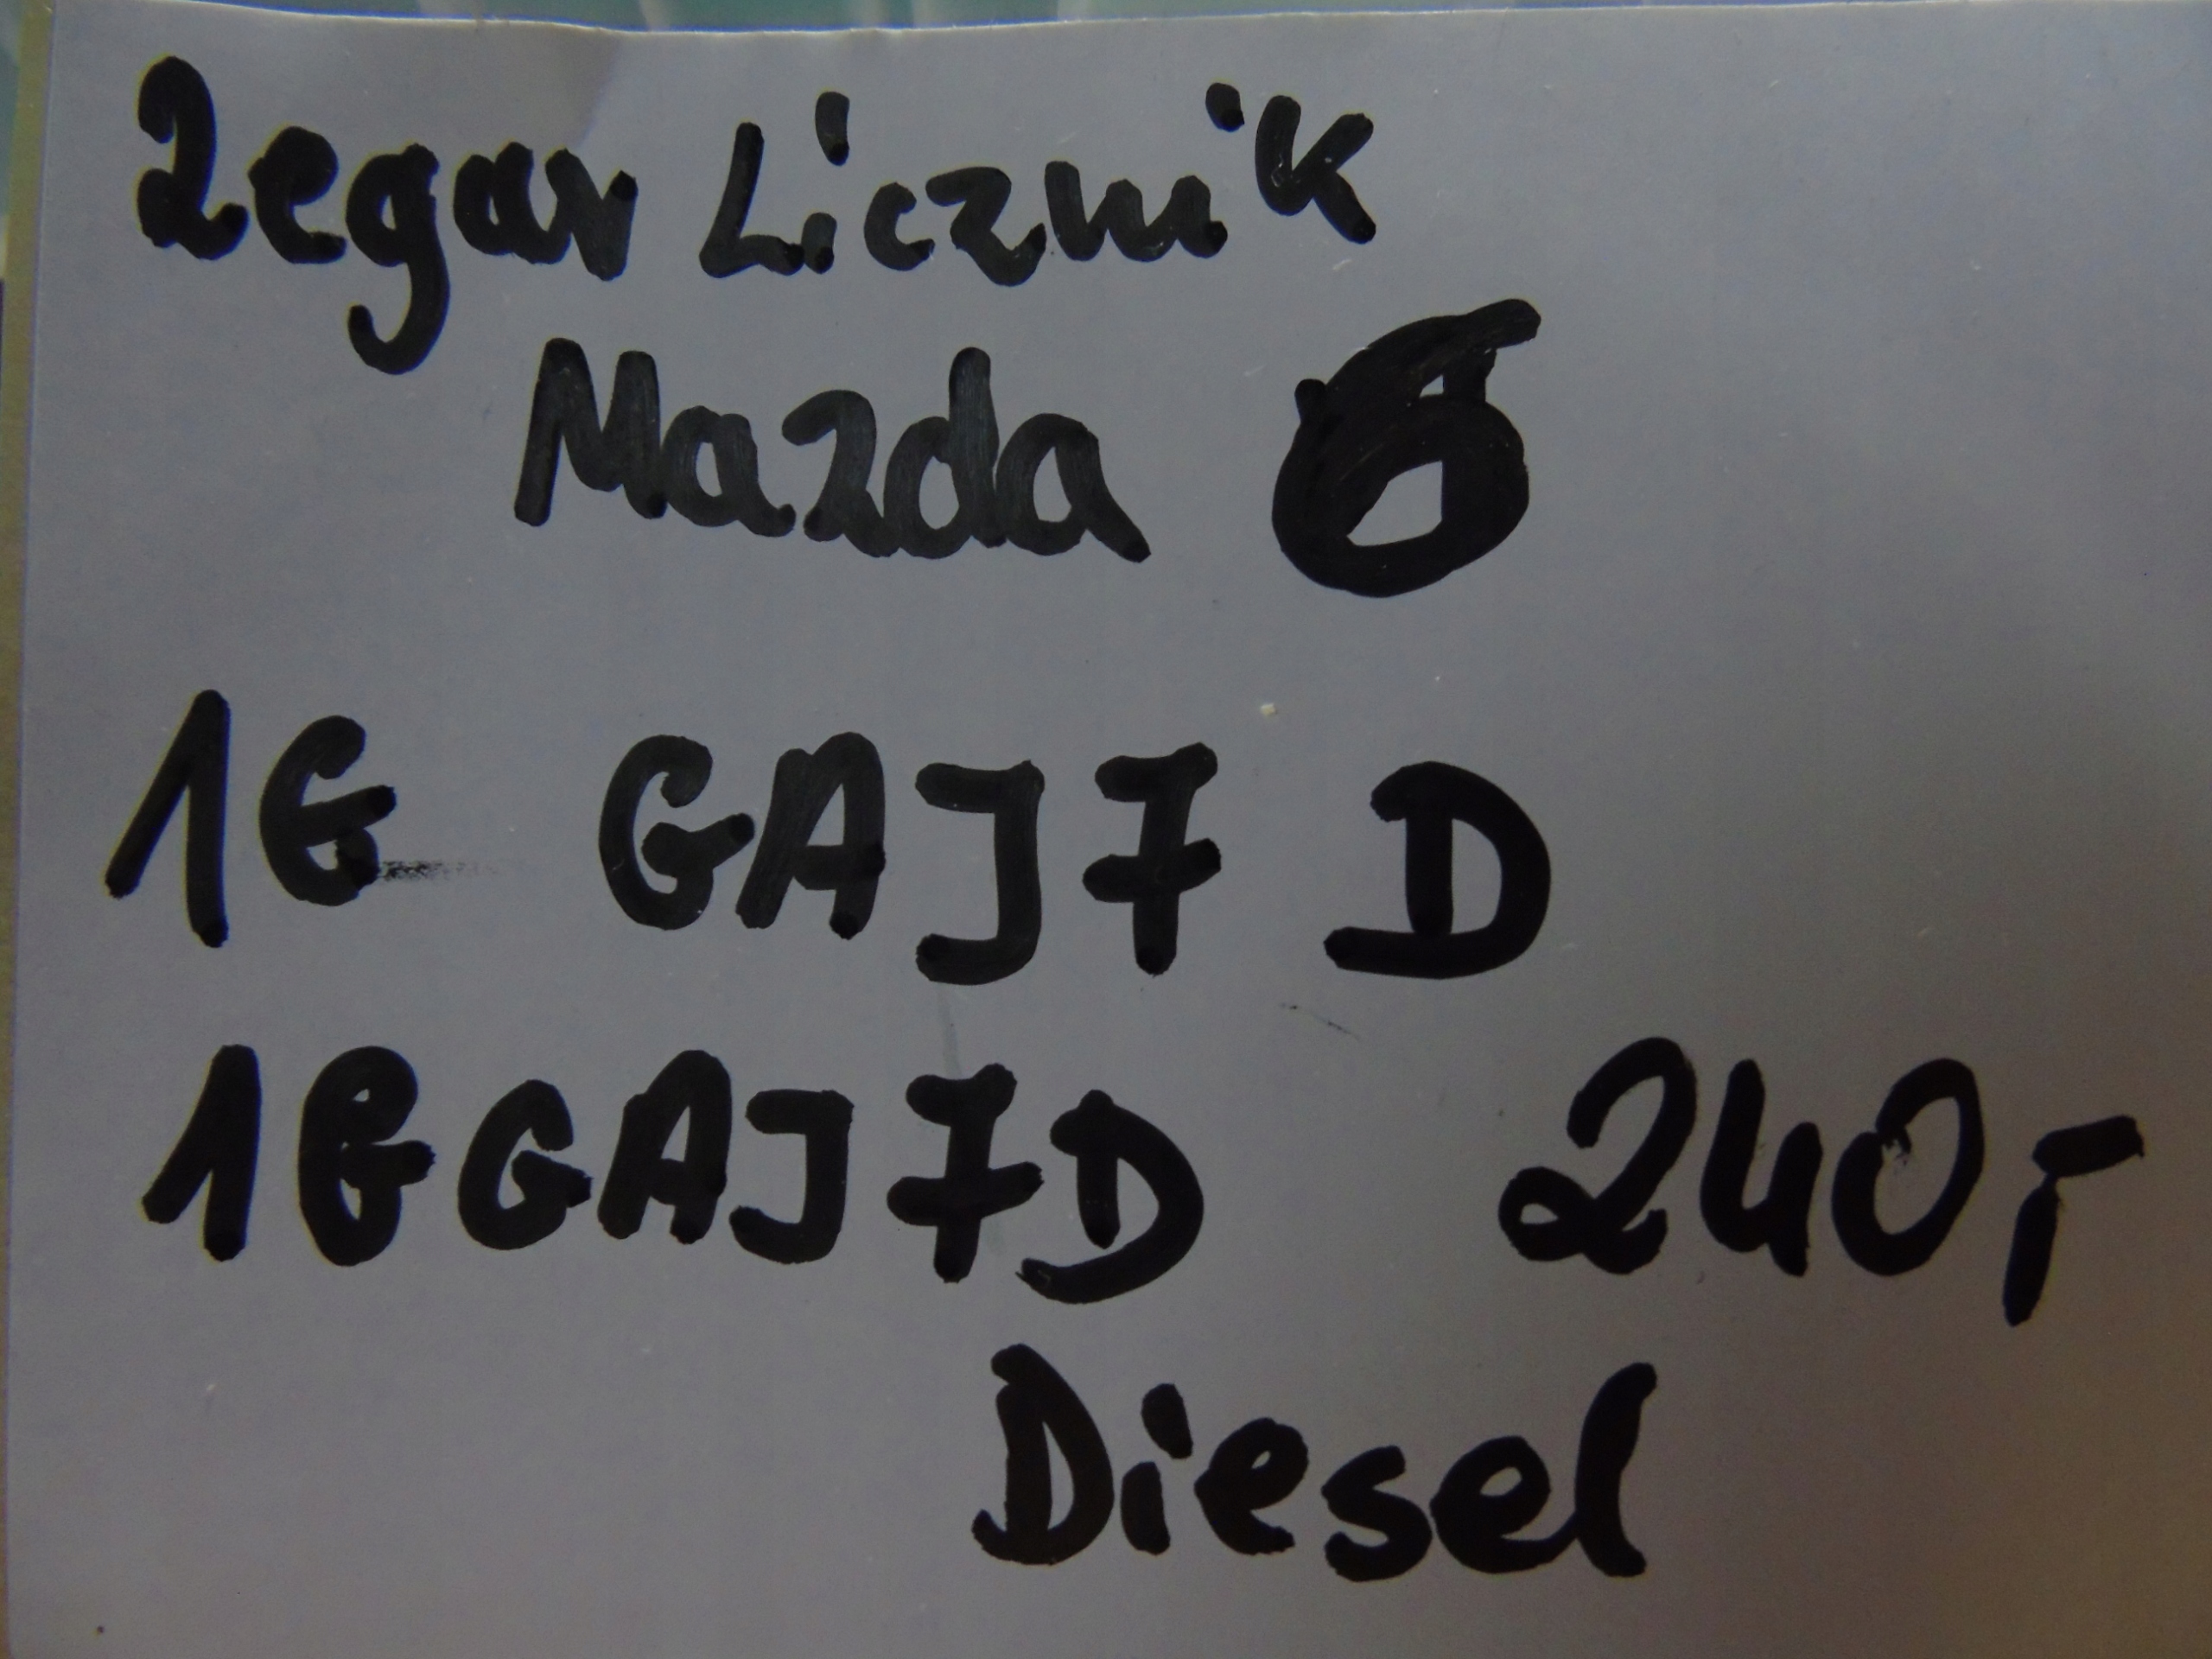 Zegar Licznik
Mazda 6
1G GAJ7 D
1GGAJ7D 240,-
Diesel